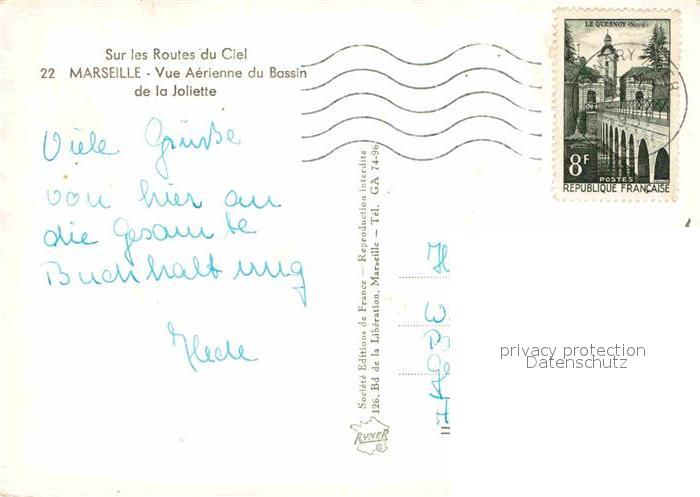 Sur les Routes du Ciel
22 MARSEILLE - Vue Aérienne du Bassin
de la Joliette
Viele Grüße
von hier an
die gesamte
Buchhaltung
Société Editions de France — Reproduction interdite
126, Bd de la Libération, Marseille — Tél. GA 74-96
RYNER
LE QUESNOY (Nord)
8F
POSTES
REPUBLIQUE FRANÇAISE
privacy protection
Datenschutz